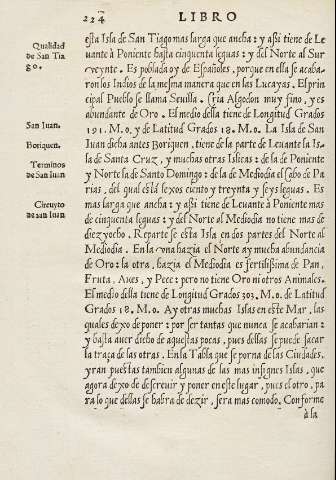 224 LIBRO
Qualidad
de San Tia
go.
San Juan.
Boriquen.
Terminos
de San Iuan
Circuyto
de san Iuan
esta Isla de San Tiago mas larga que ancha: y assi tiene de Le
uante à Poniente hasta cinquenta leguas: y del Norte al Sur
veynte. Es poblada oy de Españoles, porque en ella se acaba-
ron los Indios de la mesma manera que en las Lucayas. El prin
cipal Pueblo se llama Seuilla. Cria Algodon muy fino, y es
abundante de Oro. El medio della tiene de Longitud Grados
191. M. 0. y de Latitud Grados 18. M. 0. La Isla de San
Iuan dicha antes Boriquen, tiene de la parte de Leuante la Is-
la de Santa Cruz, y muchas otras Islicas: de la de Poniente
y Norte la de Santo Domingo: de la de Mediodia el cabo de Pa
rias, del qual està lexos ciento y treynta y seys leguas. Es
mas larga que ancha: y assi tiene de Leuante à Poniente mas
de cinquenta leguas: y del Norte al Mediodia no tiene mas de
diez y ocho. Reparte se esta Isla en dos partes del Norte al
Mediodia. En la vna hazia el Norte ay mucha abundancia
de Oro: la otra, hazia el Mediodia es fertilissima de Pan,
Fruta, Aues, y Pece: pero no tiene Oro ni otros Animales.
El medio della tiene de Longitud Grados 303. M. 0. de Latitud
Grados 18. M. 0. Ay otras muchas Islas en este Mar, las
quales dexo de poner: por ser tantas que nunca se acabarian:
y basta auer dicho de aquestas pocas, pues dellas se puede sacar
la traça de las otras. En la Tabla que se porna de las Ciudades,
yran puestas tambien algunas de las mas insignes Islas, que
agora dexo de descreuir y poner en este lugar, pues el otro, pa
ra lo que dellas se habra de dezir, sera mas comodo. Conforme
à la